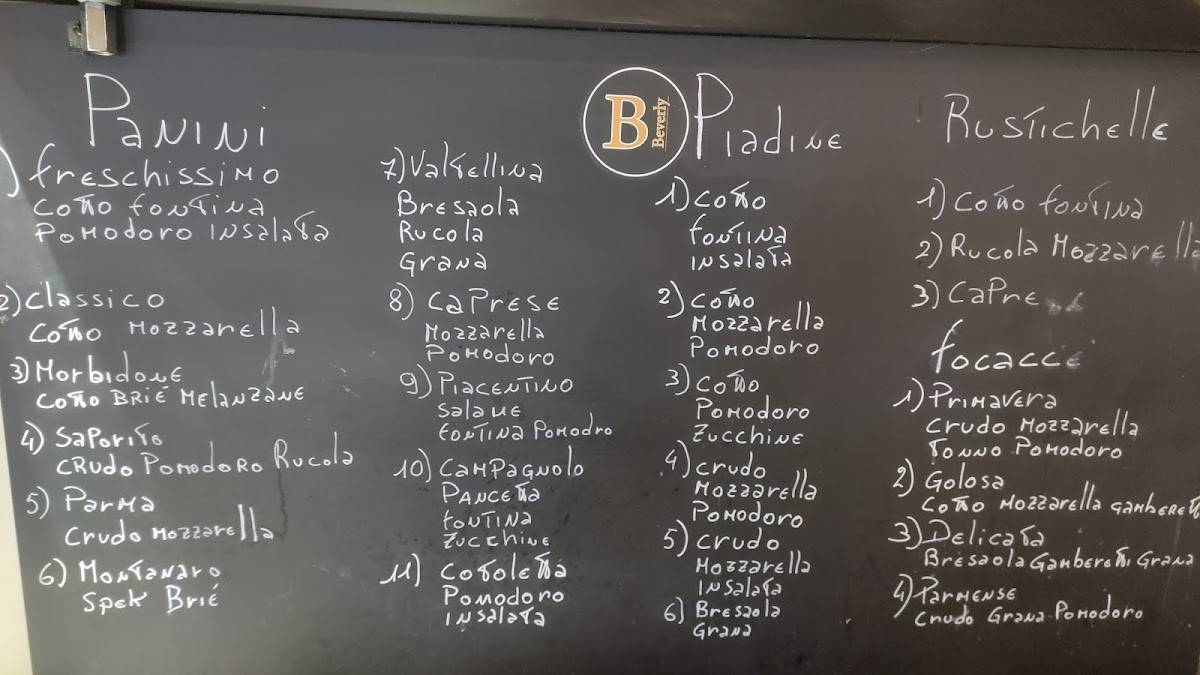 Panini
1) freschissimo
cotto fontina
Pomodoro insalata
2) classico
cotto Mozzarella
3) Morbidone
cotto Brié Melanzane
4) Saporito
crudo Pomodoro Rucola
5) Parma
crudo Mozzarella
6) Montanaro
Spek Brié
7) Valtellina
Bresaola
Rucola
Grana
8) Caprese
Mozzarella
Pomodoro
9) Piacentino
Salame
fontina Pomodro
10) Campagnolo
Pancetta
fontina
Zucchine
11) Cotoletta
Pomodoro
insalata
B Beverly
Piadine
1) cotto
fontina
insalata
2) cotto
Mozzarella
Pomodoro
3) cotto
Pomodoro
Zucchine
4) crudo
Mozzarella
Pomodoro
5) crudo
Mozzarella
insalata
6) Bresaola
Grana
Rustichelle
1) cotto fontina
2) Rucola Mozzarella
3) Capre
focacce
1) Primavera
crudo Mozzarella
tonno Pomodoro
2) Golosa
cotto Mozzarella
3) Delicata
Bresaola Gamberetti Grana
4) Parmense
crudo Grana Pomodoro